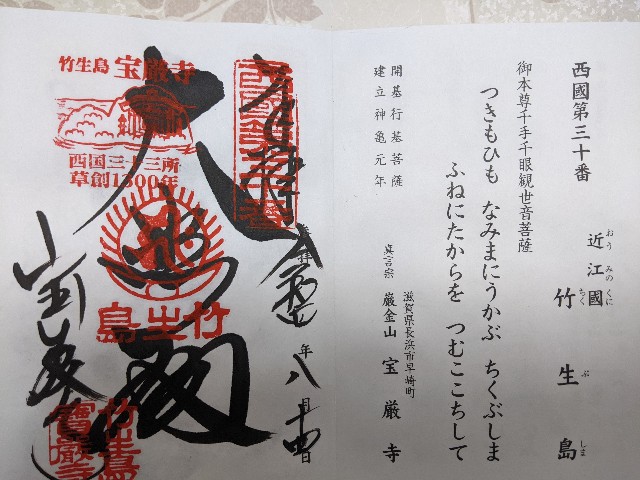 西國第三十番
近江國 竹生島
おうみのくに ちくぶしま
御本尊千手千眼観世音菩薩
つきもひも なみまにうかぶ ちくぶしま
ふねにたからを つむここちして
開基行基菩薩
建立神亀元年
滋賀県長浜市早崎町
真言宗 巌金山 宝厳寺
奉拝
年八月十四日
大悲殿
宝厳寺
竹生島 宝厳寺
西国三十三所
草創1300年
竹生島
竹生島寶厳寺